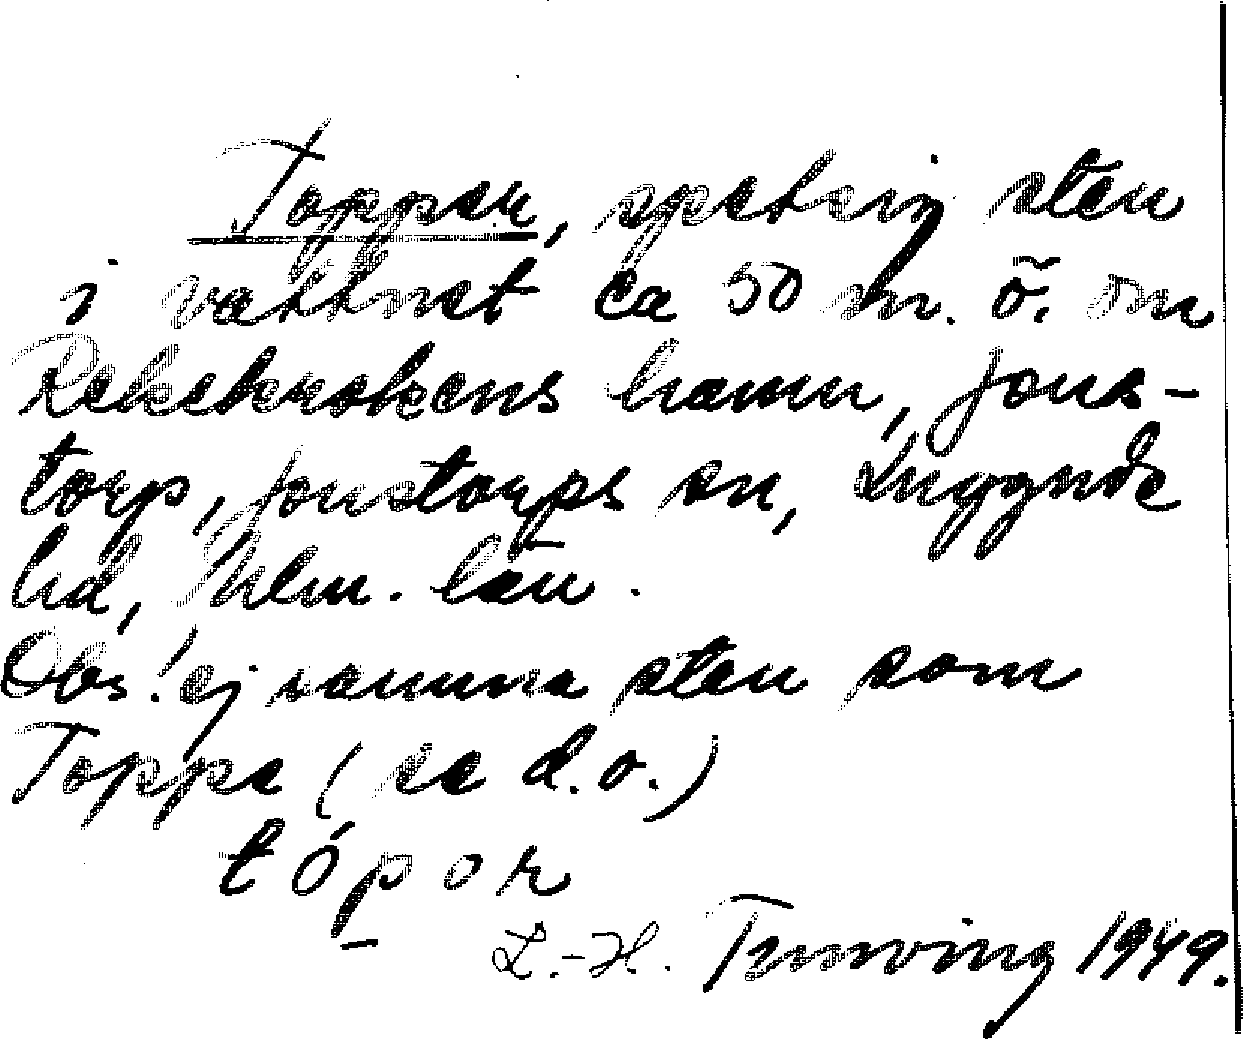 Topper, spetsig sten
i vattnet ca 50 m. ö. om
Rekekrokens hamn, Jons-
torp, Jonstorps sn, Luggude
hd, Mlm. län.
Obs! ej samma sten som
Toppe (se d.o.)
tópor
L.-H. Tunving 1949.